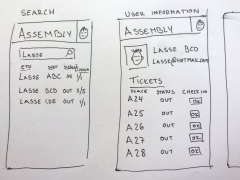 SEARCH
ASSEMBLY
LASSE
LASSE ABC IN 1/1
LASSE BCD OUT 5/5
LASSE CDE OUT 1/1
USER INFORMATION
ASSEMBLY
LASSE BCD
LASSE@HOTMAIL.COM
TICKETS
PLACE STATUS CHECK IN
A24 OUT OK
A25 OUT OK
A26 OUT OK
A27 OUT OK
A28 OUT OK